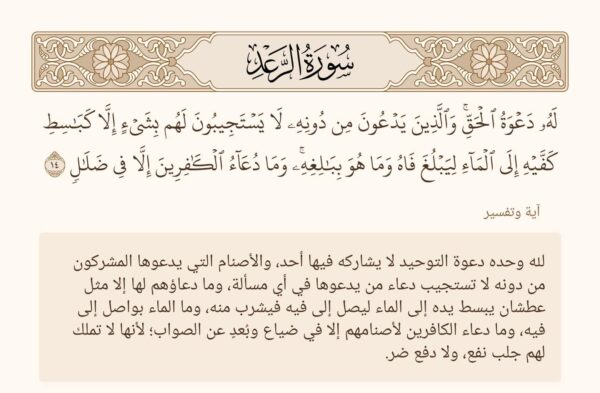 سُورَةُ الرَّعْدِ
لَهُۥ دَعْوَةُ ٱلْحَقِّۚ وَٱلَّذِينَ يَدْعُونَ مِن دُونِهِۦ لَا يَسْتَجِيبُونَ لَهُم بِشَىْءٍ إِلَّا كَبَـٰسِطِ
كَفَّيْهِ إِلَى ٱلْمَآءِ لِيَبْلُغَ فَاهُ وَمَا هُوَ بِبَـٰلِغِهِۦۚ وَمَا دُعَآءُ ٱلْكَـٰفِرِينَ إِلَّا فِى ضَلَـٰلٍ ١٤
آية وتفسير
لله وحده دعوة التوحيد لا يشاركه فيها أحد، والأصنام التي يدعوها المشركون
من دونه لا تستجيب دعاء من يدعوها في أي مسألة، وما دعاؤهم لها إلا مثل
عطشان يبسط يده إلى الماء ليصل إلى فيه فيشرب منه، وما الماء بواصل إلى
فيه، وما دعاء الكافرين لأصنامهم إلا في ضياع وبُعدٍ عن الصواب؛ لأنها لا تملك
لهم جلب نفع، ولا دفع ضر.